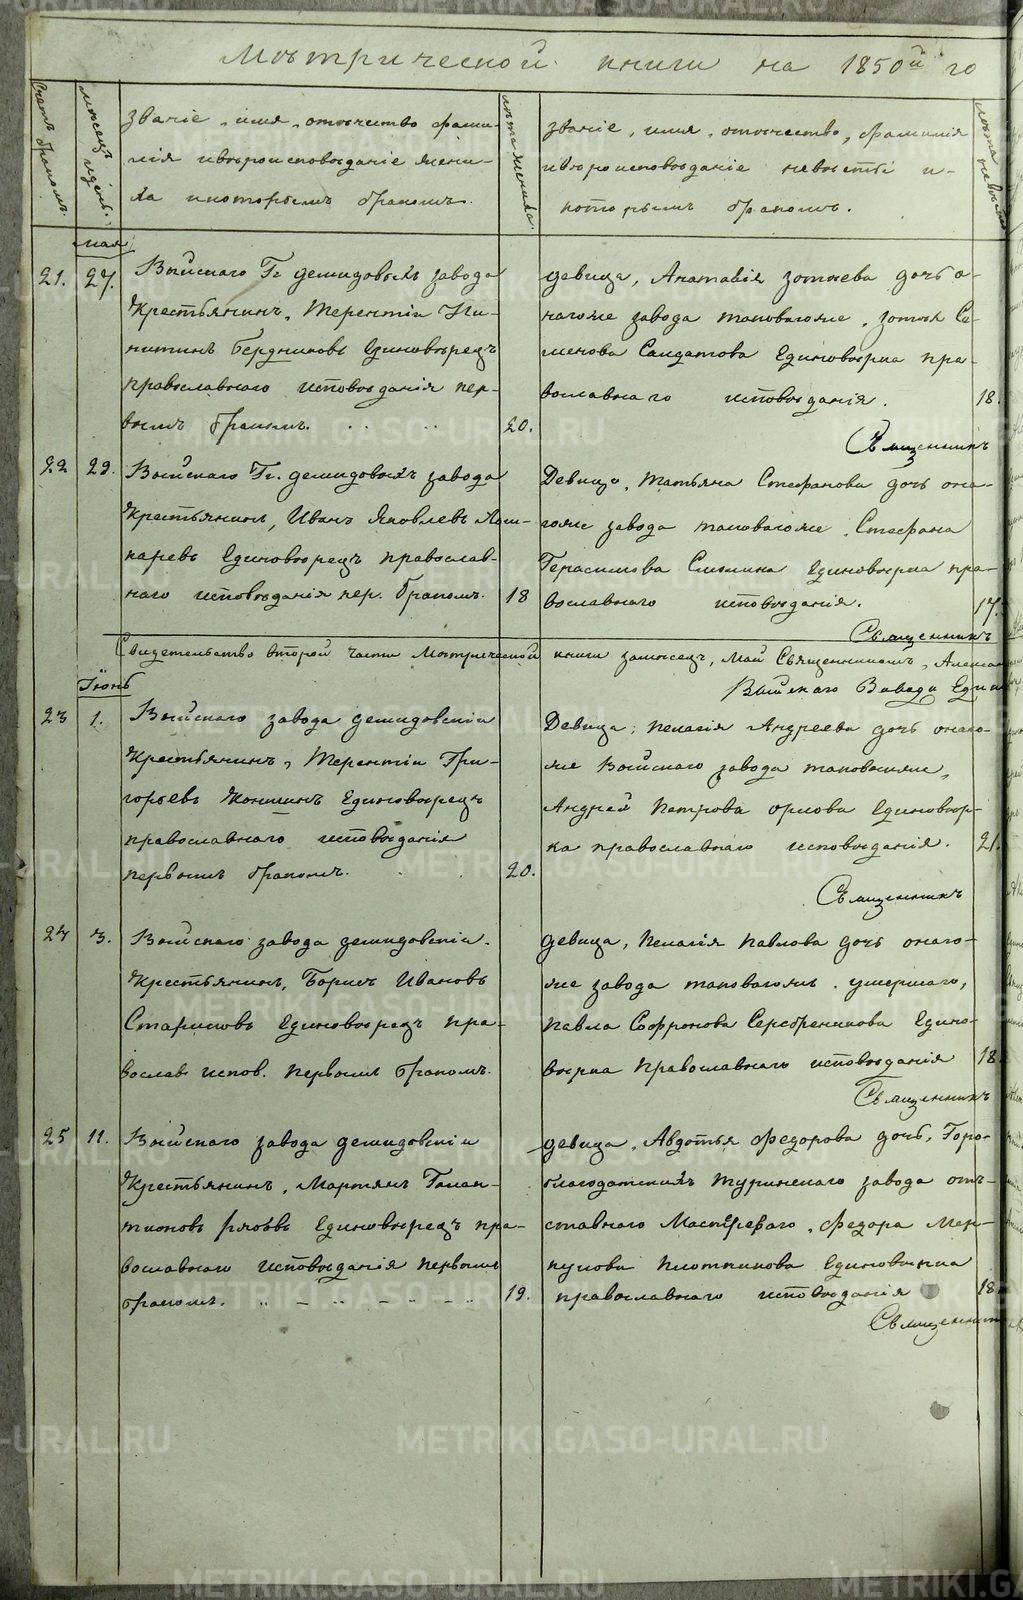 Метрической книги на 1850й го
Счетъ браковъ.
Месяцъ и день.
Званіе, имя, отечество фами-
лія и вероисповеданіе жени-
ха и которымъ бракомъ.
Лета жениха.
Званіе, имя, отечество, фамилія
и вероисповеданіе невесты и-
которымъ бракомъ.
Лета невесты
мая
21. 27. Выйскаго Гг демидовыхъ завода
Крестьянинъ, Терентіи Ни-
китинъ Бердниковъ Единоверецъ
православнаго исповеданія пер-
вымъ бракомъ. 20.
девица, Анатавія зотеева дочь о-
нагоже завода таковагоже, зотея Се-
менова Салдатова Единоверка пра-
вославнаго исповеданія. 18.
Священникъ
22 29. Выйскаго Гг. демидовыхъ завода
Крестьянинъ, Иванъ Яковлевъ
каревъ Единоверецъ православ-
наго исповеданія пер. бракомъ. 18
Девица, Татьяна Стефанова дочь она-
гоже завода таковагоже, Стефана
Герасимова Смолина Единоверка пра-
вославнаго исповеданія. 17.
Священникъ
Свидетельство второй части Метрической книги замесецъ, Май Священникомъ,
Выйскаго Завода Един
Іюнь
23 1. Выйскаго завода демидовскіи
Крестьянинъ, Терентіи Гри-
горьевъ Коншинъ Единоверецъ
православнаго исповеданія
первымъ бракомъ. 20.
Девица, пелагія Андреева дочь онаго-
же Выйскаго завода таковагоже,
Андрея Петрова орлова Единовер-
ка православнаго исповеданія. 21.
Священникъ
24 3. Выйскаго завода демидовскіи.
Крестьянинъ, Борисъ Ивановъ
Стариковъ Единоверецъ пра-
вослав. испов. Первымъ бракомъ.
девица, Пелагія Павлова дочь онаго-
же завода таковагожъ умершаго,
Павла Софронова Серебреникова Едино-
верка Православнаго исповеданія 18.
Священникъ
25 11. Выйскаго завода демидовскіи
Крестьянинъ, Мартянъ Галак-
тионовъ Единоверецъ пра-
вославнаго исповеданія первымъ
бракомъ. 19.
девица, Авдотья Федорова дочь, Горо-
благодатскихъ туринскаго завода от-
ставнаго Мастероваго, Федора Мер-
кулова Плотникова Единоверка
православнаго исповеданія 18.
Священник
METRIKI.GASO-URAL.RU